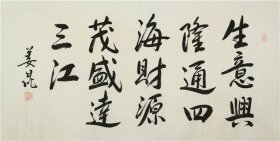 生意興
隆通四
海財源
茂盛達
三江
姜昆